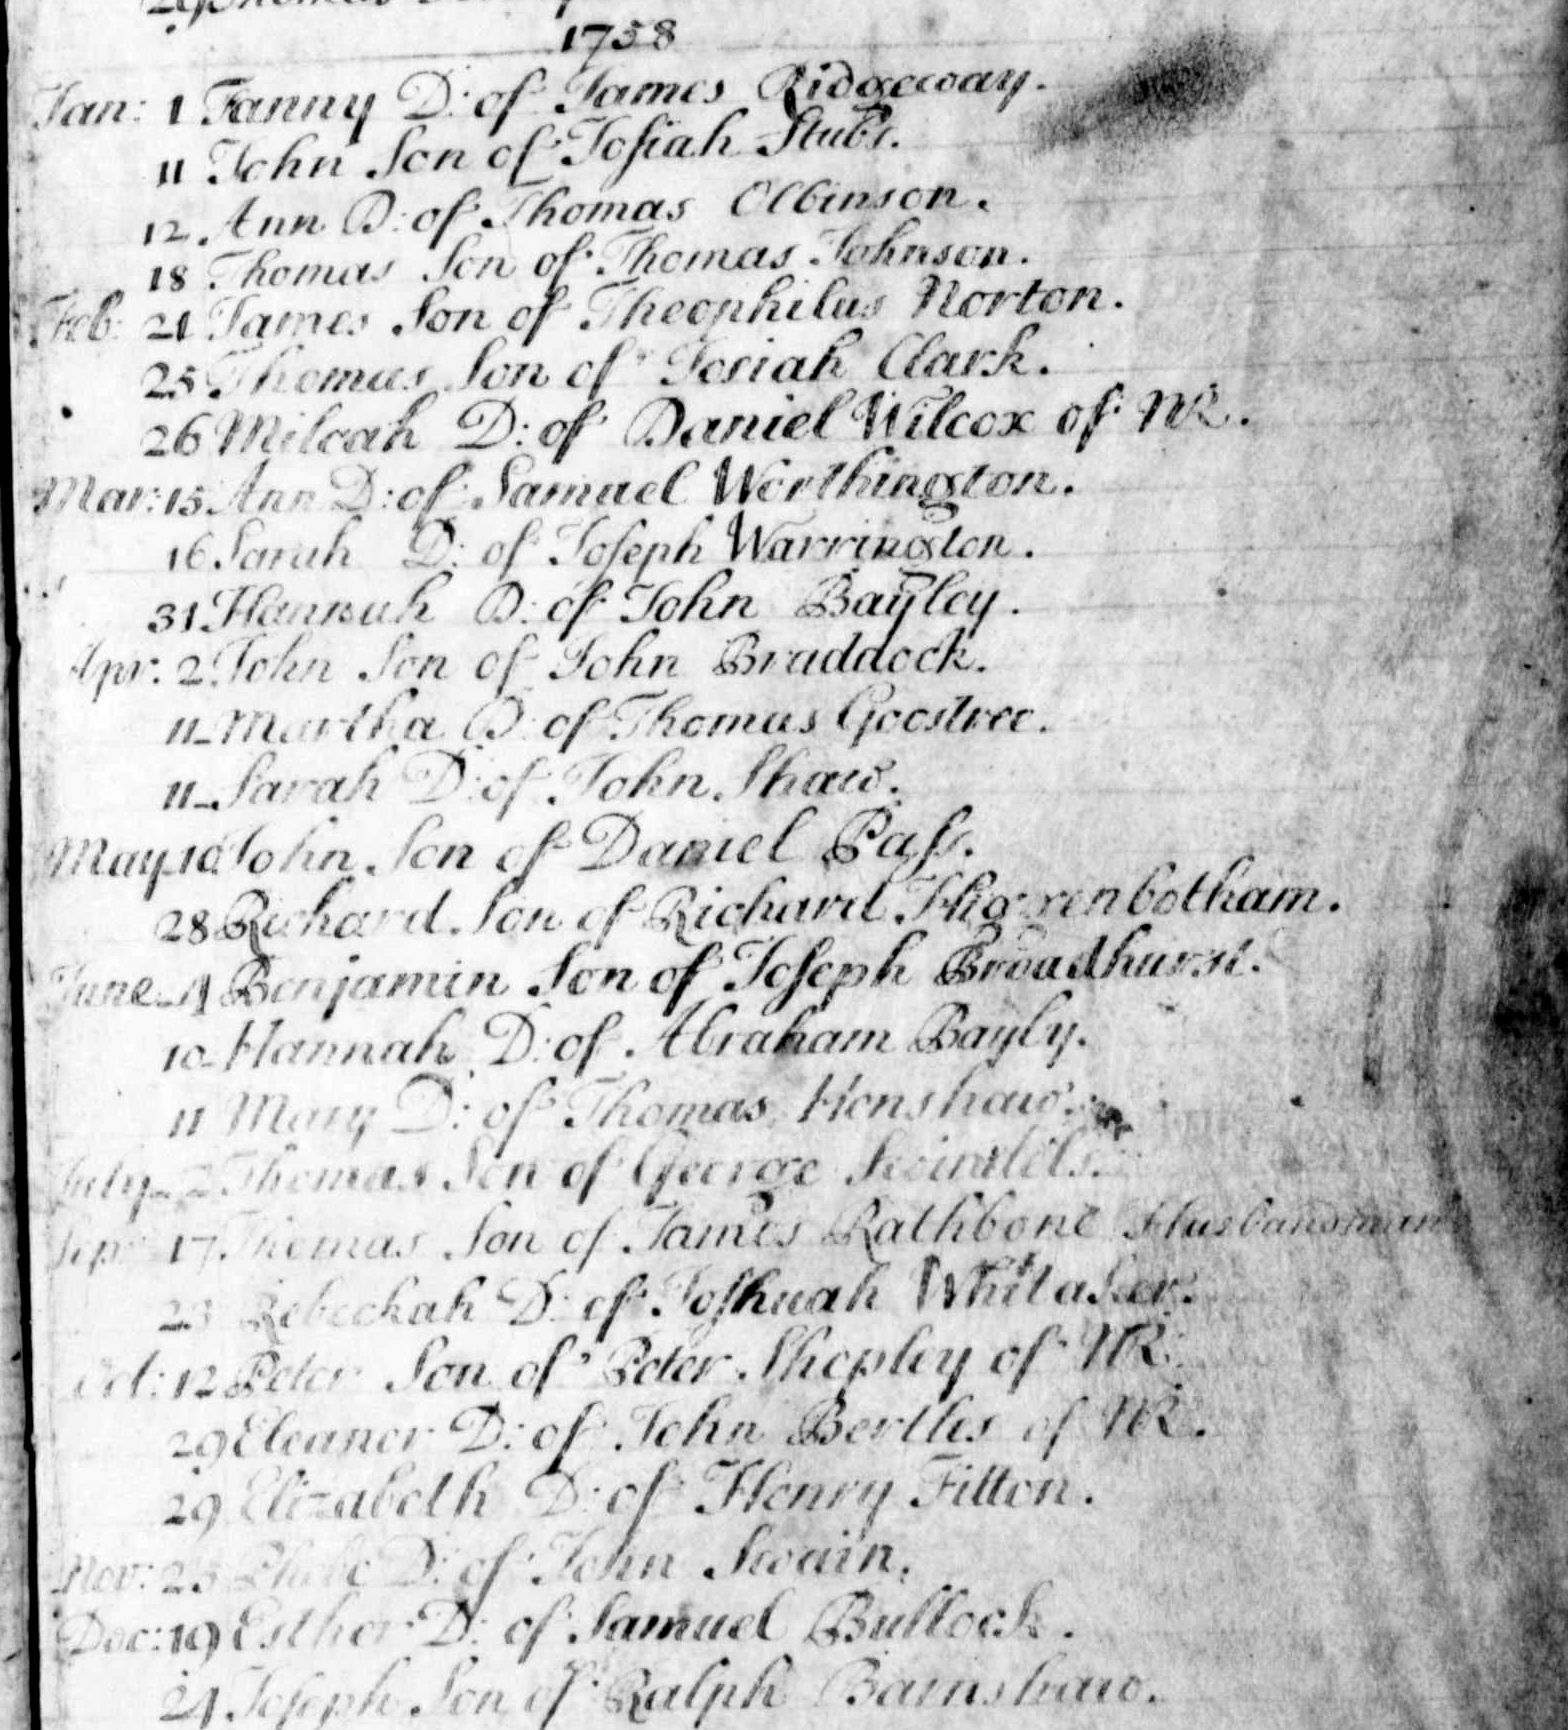 1758
Jan: 1 Fanny D: of James Ridgeway.
11 John Son of Josiah Stubs.
12 Ann D: of Thomas Olbinson.
18 Thomas Son of Thomas Johnson.
Feb: 21 James Son of Theophilus Norton.
25 Thomas Son of Josiah Clark.
26 Milcah D: of Daniel Wilcox of NR.
Mar: 15 Ann D: of Samuel Worthington.
16 Sarah D: of Joseph Warrington.
31 Hannah D: of John Bayley.
Apr: 2 John Son of John Braddock.
11 Martha D: of Thomas Goostree.
11 Sarah D: of John Shaw.
May 10 John Son of Daniel Pass.
28 Richard Son of Richard Higgenbotham.
June 4 Benjamin Son of Joseph Broadhurst.
10 Hannah D: of Abraham Bayly.
11 Mary D: of Thomas Henshaw.
July 2 Thomas Son of George Swindels.
Sep: 17 Thomas Son of James Rathbone Husbandman
23 Rebeckah D: of Joshuah Whitaker.
Oct: 12 Peter Son of Peter Shepley of NR.
29 Eleanor D: of John Bertles of NR.
29 Elizabeth D: of Henry Fitton.
Nov: 25 Phebe D: of John Swain.
Dec: 19 Esther D: of Samuel Bullock.
24 Joseph Son of Ralph Barnshaw.